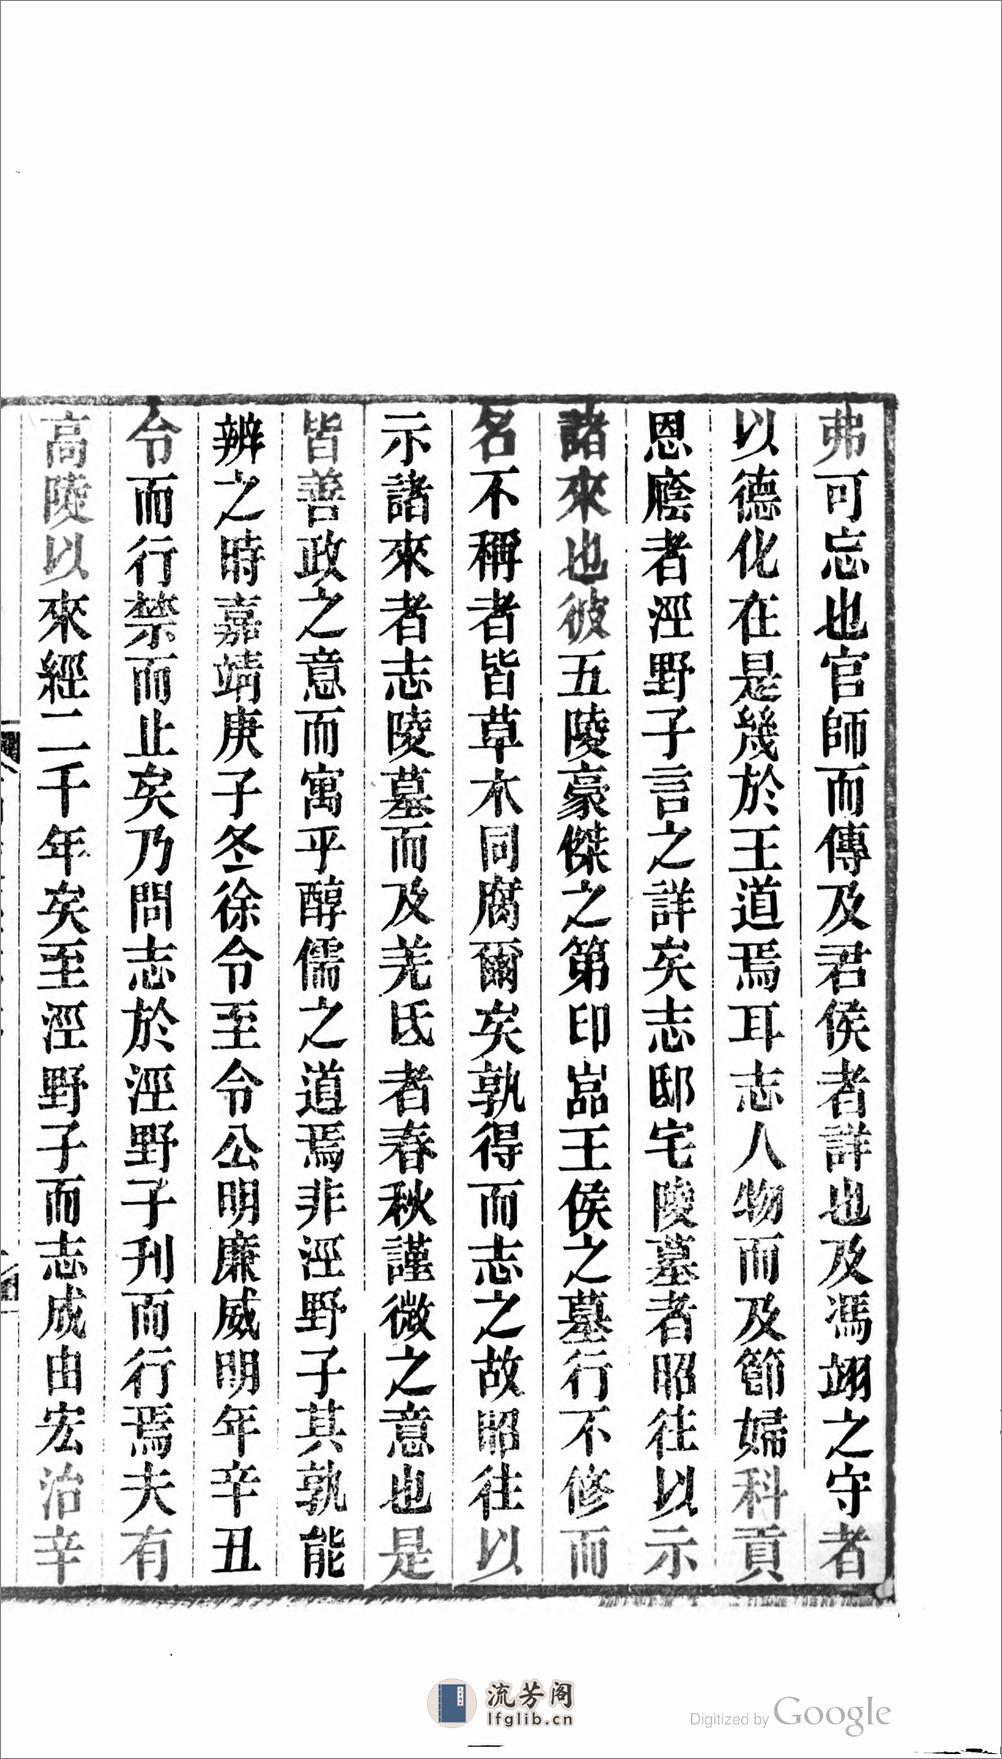 弗可忘也官師而傳及君侯者詳也及馮翊之守者
以德化在是幾於王道焉耳志人物而及節婦科貢
恩廕者涇野子言之詳矣志邸宅陵墓者昭往以示
諸來也彼五陵豪傑之第印嵓王侯之墓行不修而
名不稱者皆草木同腐爾矣孰得而志之故昭往以
示諸來者志陵墓而及羌氐者春秋謹微之意也是
皆善政之意而寓乎醇儒之道焉非涇野子其孰能
辨之時嘉靖庚子冬徐令至令公明廉威明年辛丑
令而行禁而止矣乃問志於涇野子刊而行焉夫有
高陵以來經二千年矣至涇野子而志成由宏治辛
流芳阁
lfglib.cn
Digitized by Google